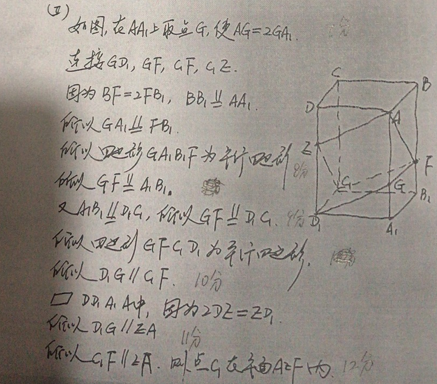 (Ⅱ)
如图,在AA₁上取点G,使AG=2GA₁.
连接GD₁, GF, C₁F, C₁E.
因为BF=2FB₁, BB₁∥=AA₁.
所以GA₁∥=FB₁.
所以四边形GA₁B₁F为平行四边形
所以GF∥=A₁B₁.
又A₁B₁∥=D₁C₁, 所以GF∥=D₁C₁.
所以四边形GFC₁D₁为平行四边形.
所以D₁G∥C₁F. 10分
▱DD₁A₁A中, 因为2DE=ED₁.
所以D₁G∥EA 11分
所以C₁F∥EA. 即点C₁在平面AEF内. 12分
C
B
D
A
E
F
C₁
G
B₁
D₁
A₁